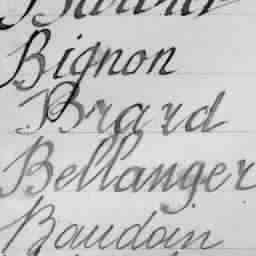 Bignon
Brard
Bellanger
Baudoin